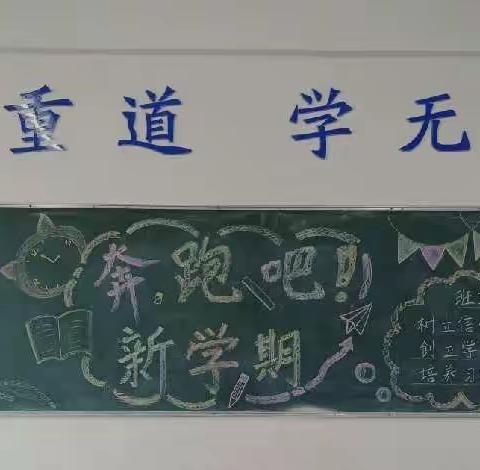 重道 学无
奔跑吧!!
新学期
班
树立信
创卫学
培养习